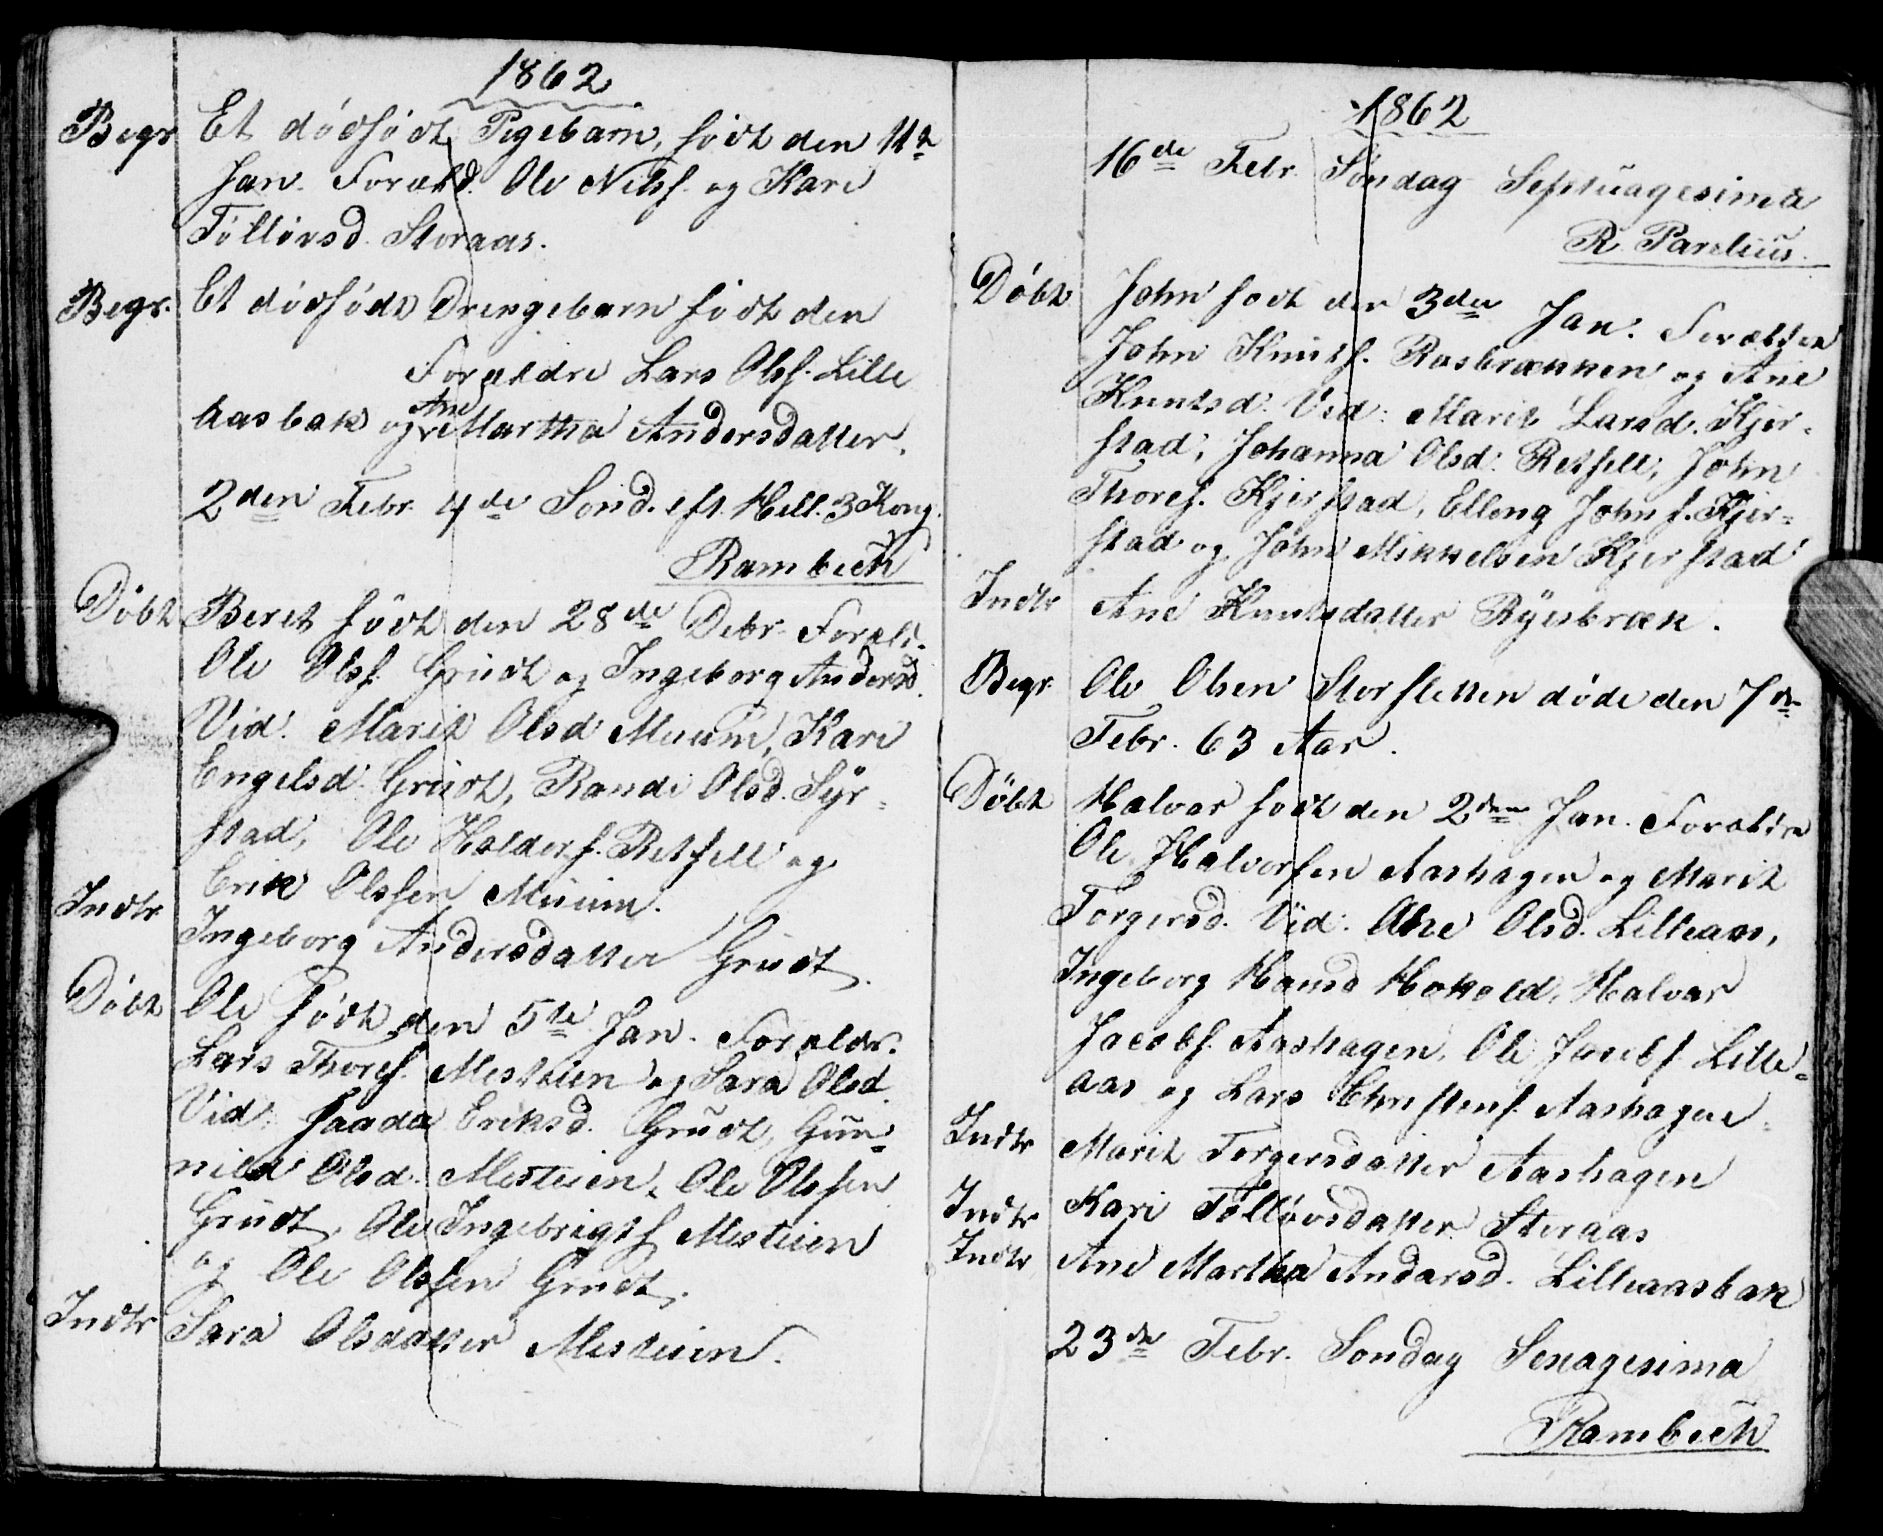 1862
Begr Et dödfödt Pigebarn, födt den 11te
Jan. Foræld. Ole Nilsf. og Kari
Tölløvsd. Storaas.
Begr. Et dödfödt Drengebarn födt den
Forældre Lars Olsf. Lille
aasbak og Ane Martha Andersdatter.
2den Febr. 4de Sönd. eft. Hell. 3 Kong.
Rambech
Döbt Beret födt den 28de Debr. Foreld.
Ole Olsf. Grudt og Ingeborg Andersd.
Vid. Marit Olsd Muum, Kari
Engelsd. Grudt, Randi Olsd. Syr-
stad, Ole Halderf. Retfell og
Erik Olssen Muum.
Indtr Ingeborg Andersdatter Grudt.
Döbt Ole födt den 5te Jan. Foreldr.
Lars Thoresf. Mestuen og Sara Olsd.
Vid. Eriksd. Grudt, Gun-
nild Olsd. Mestuen, Ole Olssen
Grudt, Ole Ingebrigtsf. Mestuen
og Ole Olssen Grudt.
Indtr Sara Olsdatter Mestuen.
1862
16de Febr. Söndag Septuagesima
R. Parelius.
Döbt John födt den 3die Jan. Forældre
John Knutsf. Rosbrækken og Ane
Knutsd. Vid: Marit Larsd. Kjer-
stad, Johanna Olsd. Retfell, John
Thoref. Kjerstad, Elleng Johnsf. Kjer-
stad og John Mikkelsen Kjerstad
Indtr Ane Knutsdatter Ryesbræk.
Begr. Ole Olsen Storfletten döde den 7de
Febr. 63 Aar.
Döbt Halvor födt den 2den Jan. Forældre
Ole Halvorsen Aashagen og Marit
Torgersd. Vid: Ane Olsd. Lilleaas,
Ingeborg Hansd Hokold, Halvar
Jacobsf. Aashagen, Ole Jacobsf. Lille-
aas og Lars Christensf. Aashagen.
Indtr Marit Torgersdatter Aashagen
Indtr Kari Tölløvsdatter Storaas
Indtr Ane Martha Andersd. Lilleaasbak
23de Febr. Söndag Sexagesima
Rambech